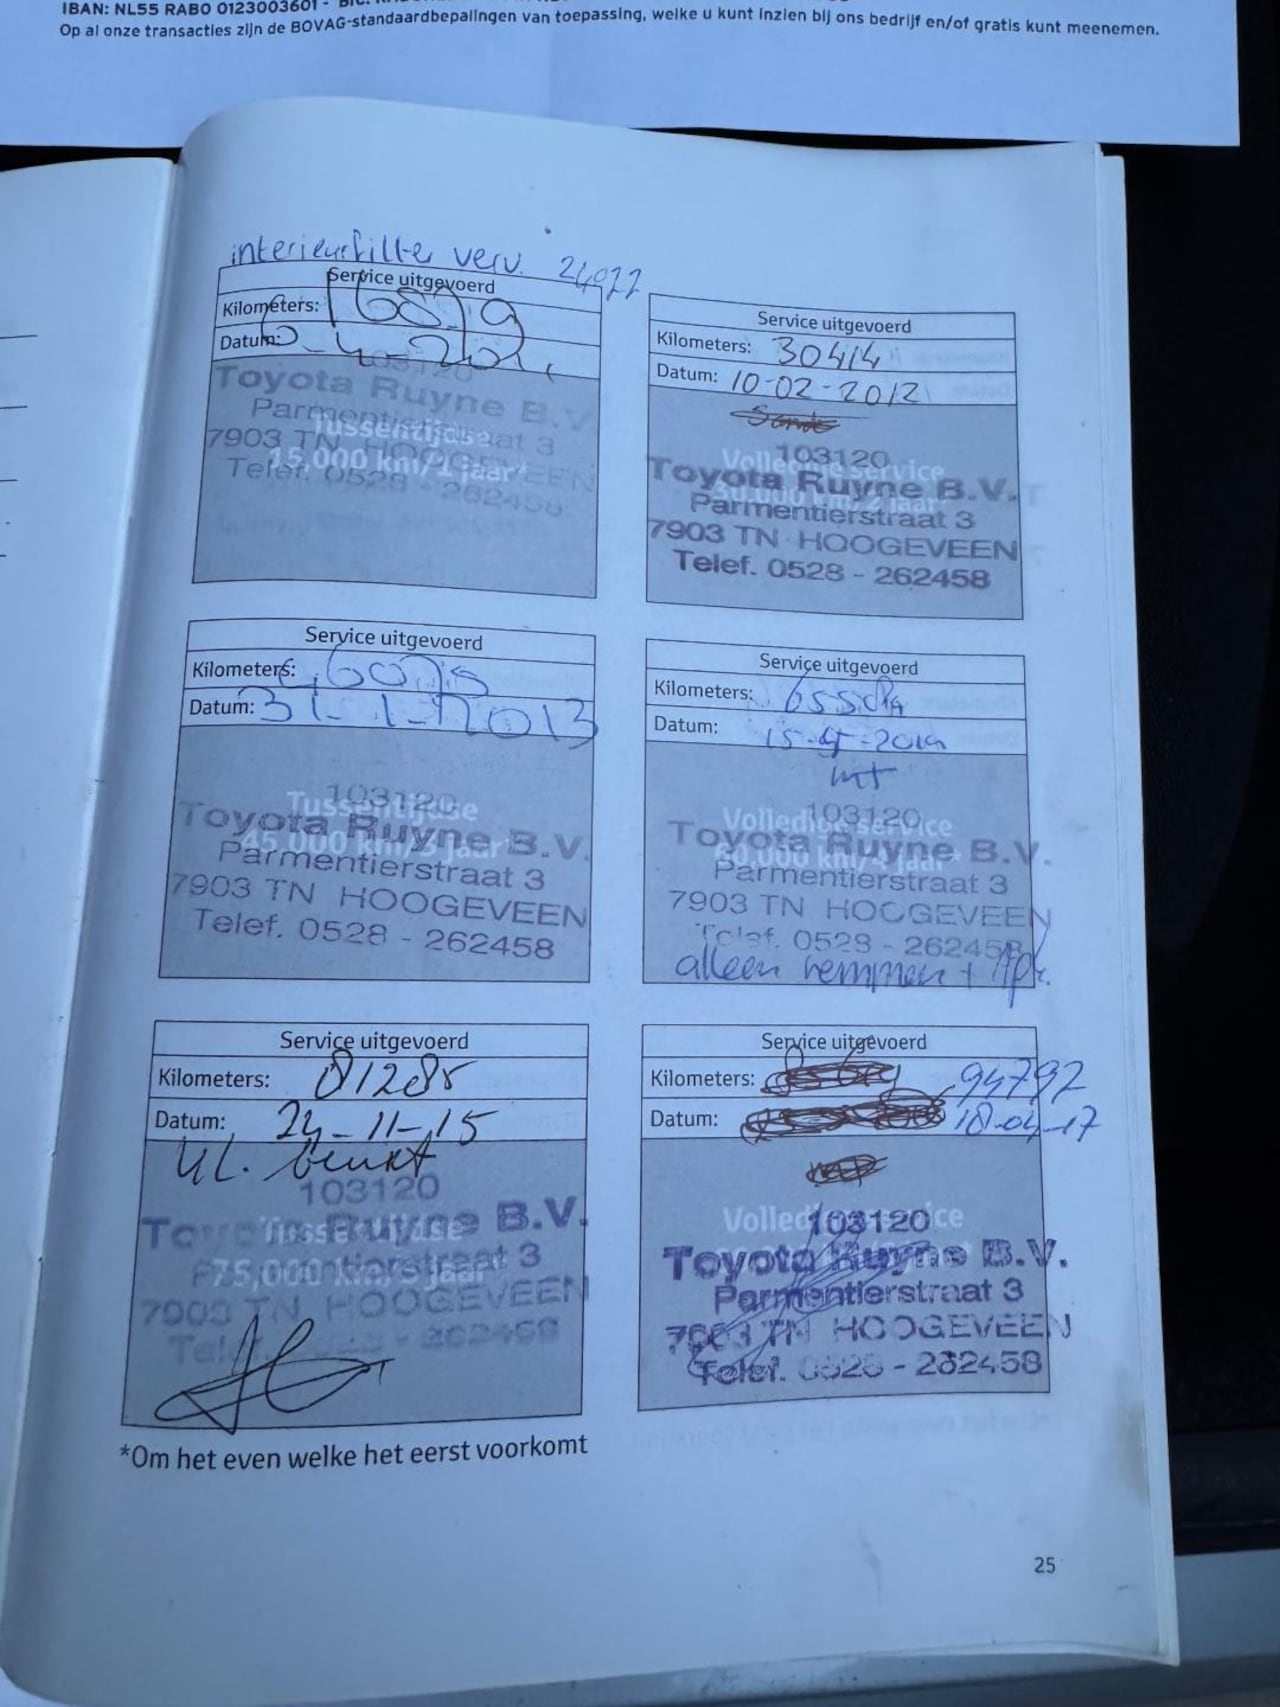 IBAN: NL55 RABO 0123003601 -
Op al onze transacties zijn de BOVAG-standaardbepalingen van toepassing, welke u kunt inzien bij ons bedrijf en/of gratis kunt meenemen.
interieurfilter verv.
Service uitgevoerd
Kilometers:
Datum:
103120
Toyota Ruyne B.V.
Parmentierstraat 3
Tussentijdse
7903 TN HOOGEVEEN
15,000 km/1 jaar*
Telef. 0528 - 262458
Service uitgevoerd
Kilometers: 30414
Datum: 10-02-2012
103120
Volledige service
Toyota Ruyne B.V.
Parmentierstraat 3
7903 TN HOOGEVEEN
Telef. 0528 - 262458
Service uitgevoerd
Kilometers:
Datum: 31-1-2013
103120
Tussentijdse
Toyota Ruyne B.V.
Parmentierstraat 3
7903 TN HOOGEVEEN
Telef. 0528 - 262458
Service uitgevoerd
Kilometers:
Datum:
103120
Volledige service
Toyota Ruyne B.V.
Parmentierstraat 3
7903 TN HOOGEVEEN
Telef. 0528 - 262458
alleen remmen +
Service uitgevoerd
Kilometers: 81285
Datum: 24-11-15
103120
Tussentijdse
Toyota Ruyne B.V.
75,000 km/5 jaar*
7903 TN HOOGEVEEN
Service uitgevoerd
Kilometers: 94792
Datum: 18-04-17
103120
Volledige service
Toyota Ruyne B.V.
Parmentierstraat 3
7903 TN HOOGEVEEN
Telef. 0528 - 262458
*Om het even welke het eerst voorkomt
25